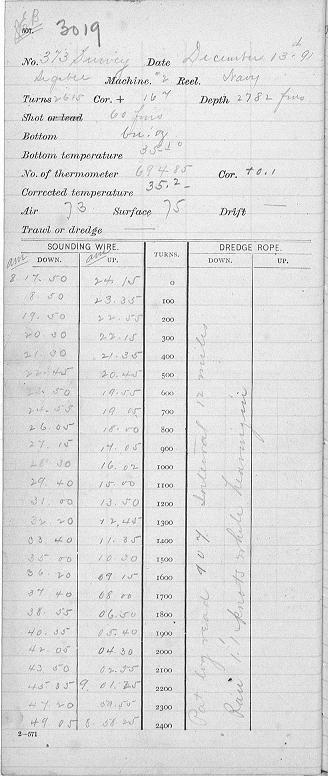 HDT. 3019
No. 373 Survey Date December 13th 91
Machine. #2 Reel. Navy
Turns 2615 Cor. + 167 Depth 2782 fms
Shot or lead 60 fms
Bottom br. oz
Bottom temperature 35.30
No. of thermometer 69485 Cor. +0.1
Corrected temperature 35.2
Air 73 Surface 75 Drift —
Trawl or dredge —
SOUNDING WIRE. TURNS. DREDGE ROPE.
am DOWN. am UP. DOWN. UP.
8 17.50 24.15 0
18.50 23.35 100
19.50 22.55 200
20.30 22.15 300
21.30 21.35 400
22.45 20.45 500
23.50 19.55 600
24.55 19.05 700
26.05 18.00 800
27.15 17.05 900
28.30 16.02 1000
29.40 15.00 1100
31.00 13.50 1200
32.20 12.45 1300
33.40 11.35 1400
35.00 10.30 1500
36.20 09.15 1600
37.40 08.00 1700
38.55 06.50 1800
40.35 05.40 1900
42.05 04.30 2000
43.50 02.55 2100
45.35 9. 01.25 2200
47.20 59.55 2300
49.05 8. 58.25 2400
Pat log read 907 Interval 12 miles
Ran 1.1 knots while heaving in
2—571